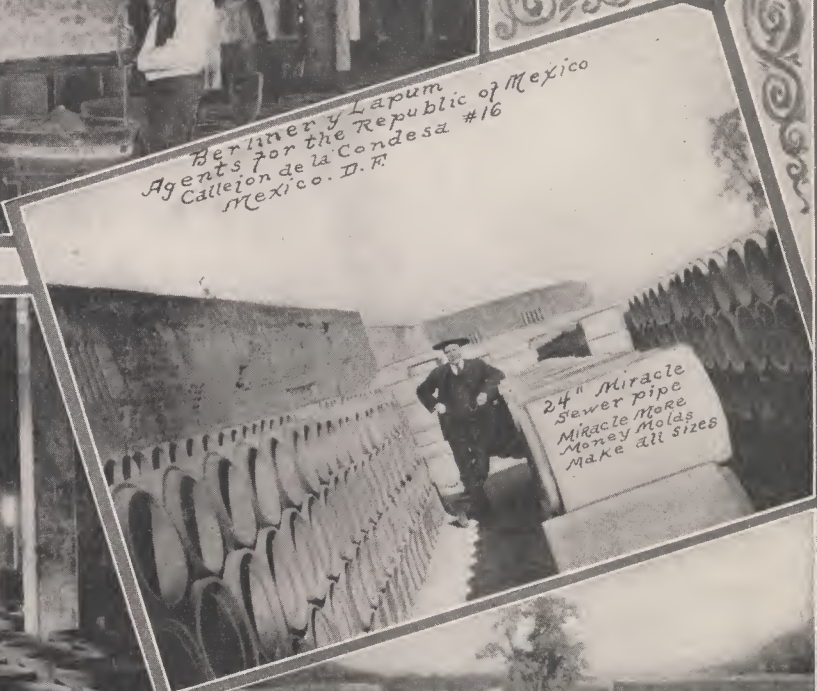 Berliner y Lapum
Agents for the Republic of Mexico
Callejon de la Condesa #16
Mexico. D.F.
24" Miracle
Sewer pipe
Miracle More
Money Molds
Make all sizes